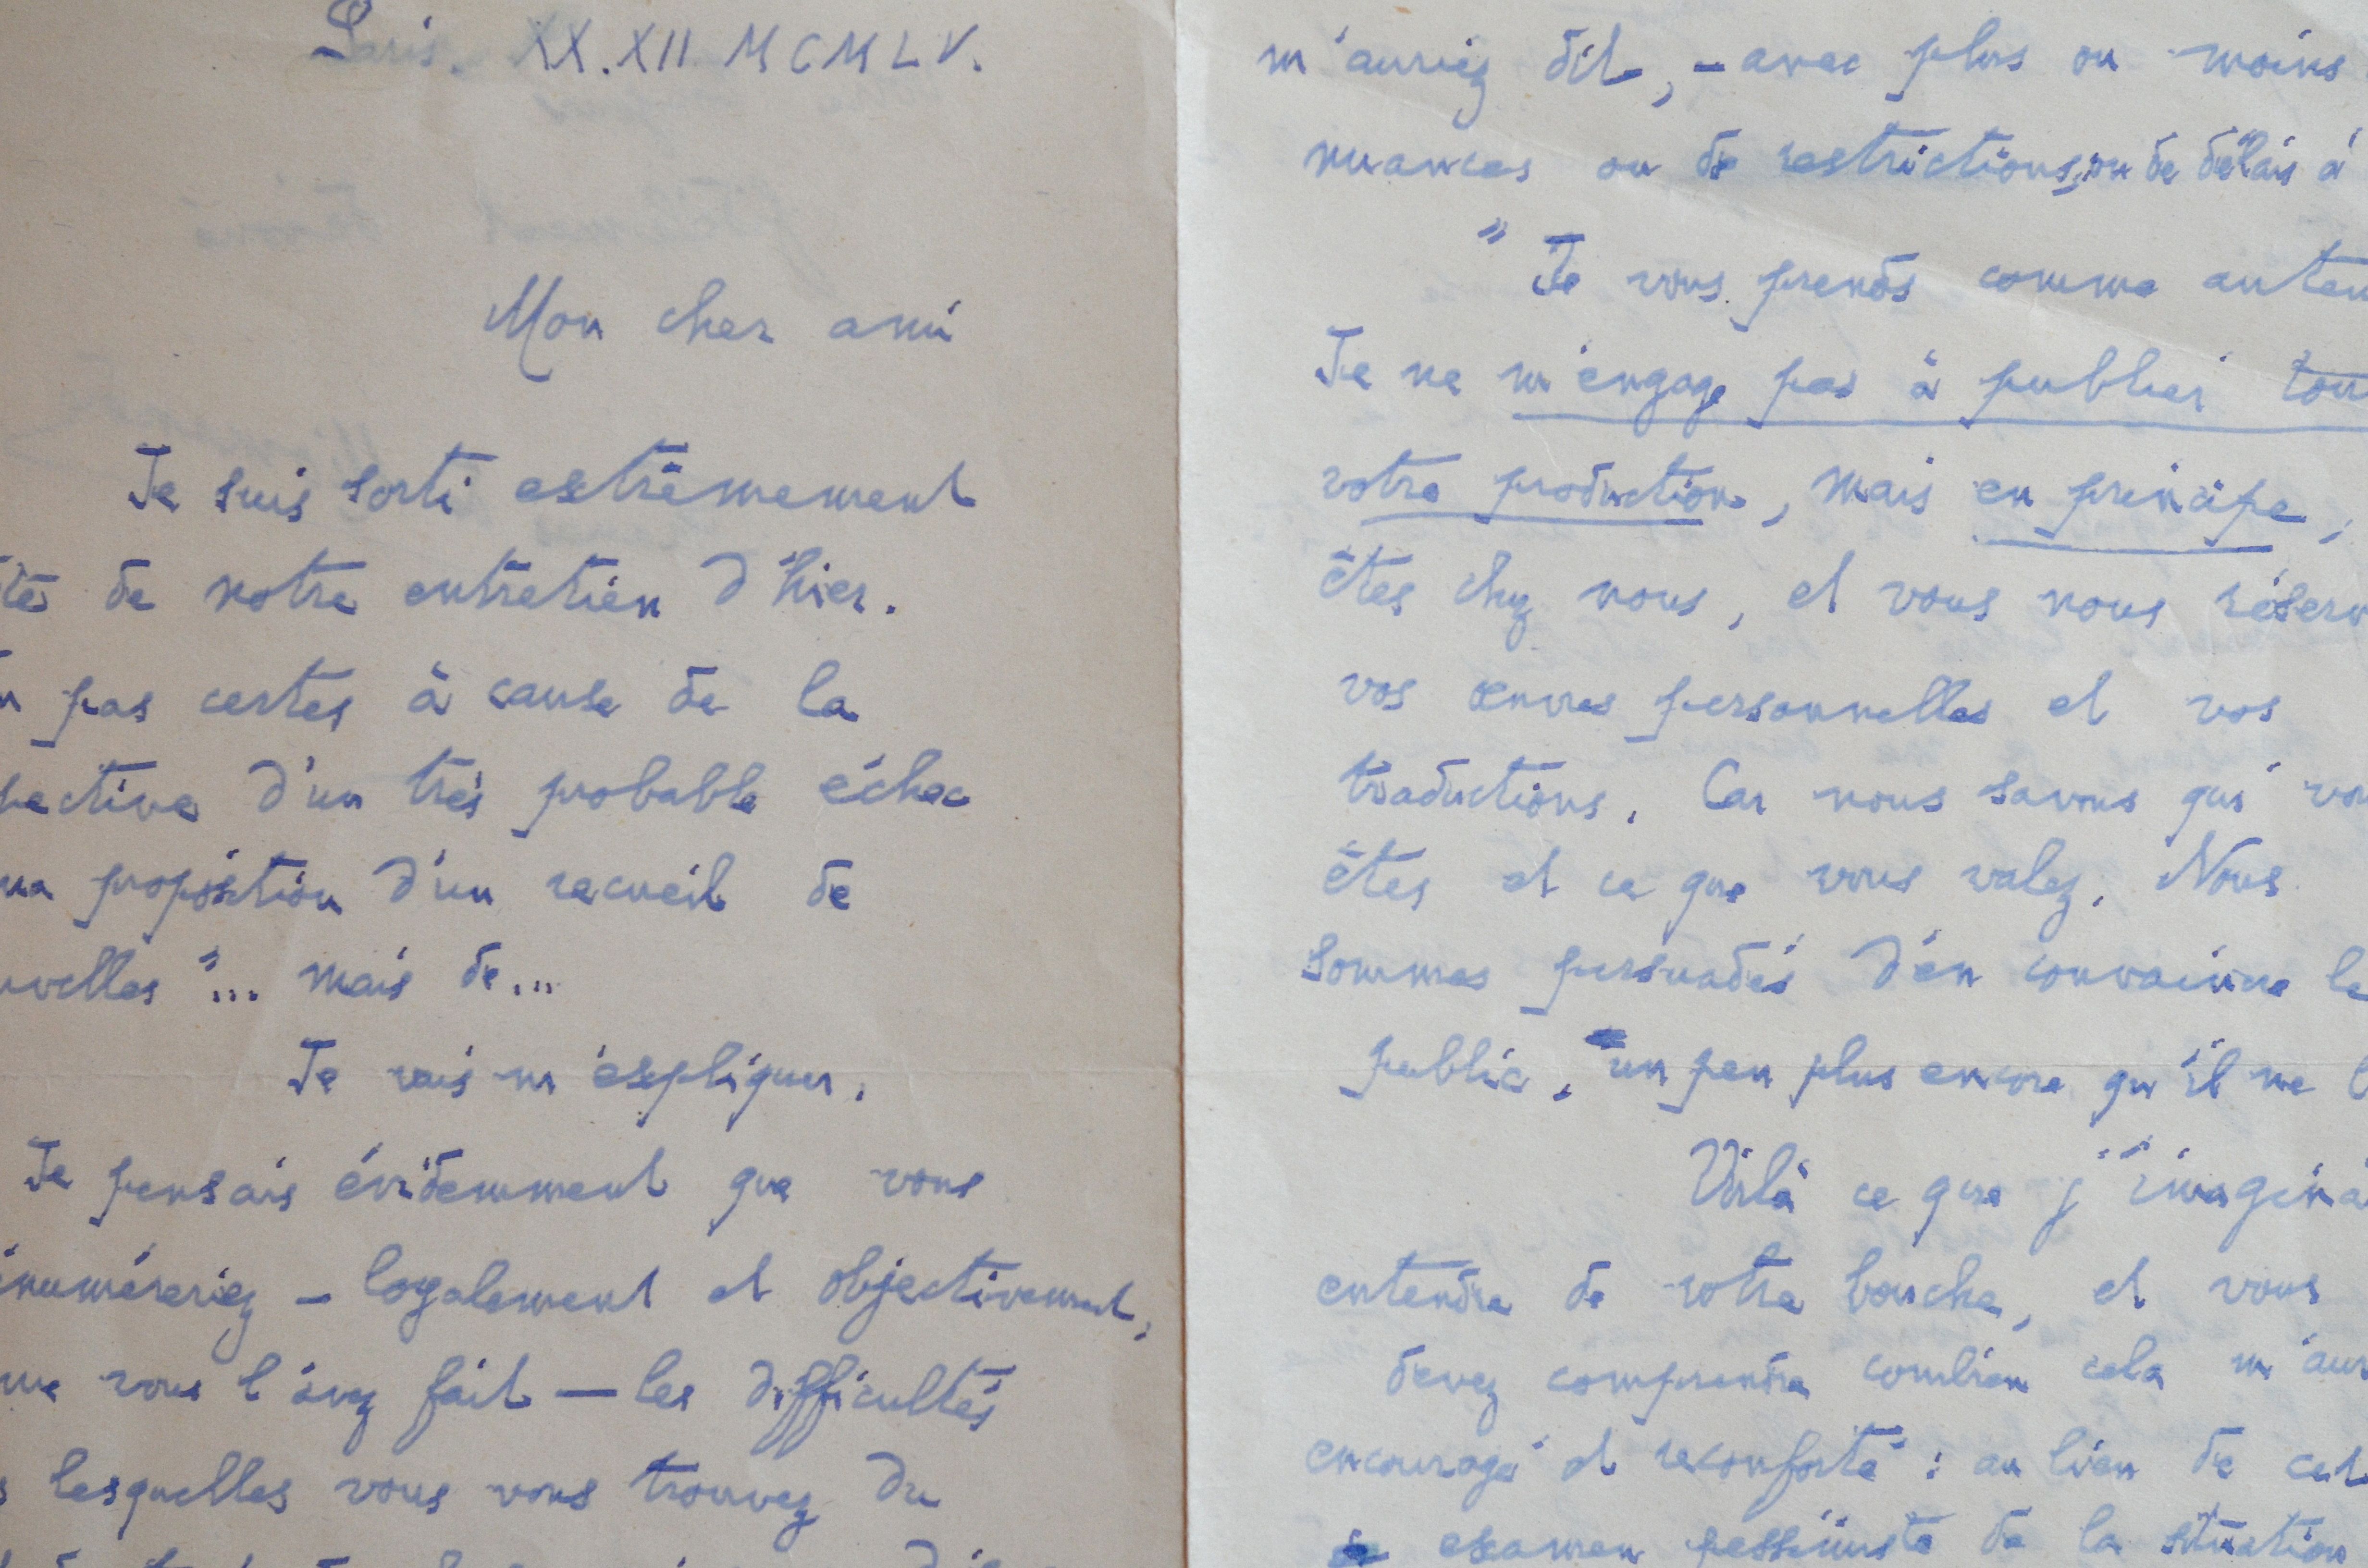 Paris. XX.XII MCMLV.
Mon cher ami
Je suis sorti extrêmement
de notre entretien d'hier.
pas certes à cause de la
pective d'un très probable échec
ma proposition d'un recueil de
uvelles "... mais de...
Je vais m'expliquer.
Je pensais évidemment que vous
énuméreriez – loyalement et objectivement,
me vous l'avez fait — les difficultés
s lesquelles vous vous trouvez du
m'auriez dit, – avec plus ou moins
nuances ou de restrictions, ou de délais à
" Je vous prends comme auteu
Je ne m'engage pas à publier tou
votre production, mais en principe,
êtes chez nous, et vous nous réserv
vos œuvres personnelles et vos
traductions. Car nous savons qui vo
êtes et ce que vous valez. Nous
sommes persuadés d'en convaincre le
public, un peu plus encore qu'il ne l
Voilà ce que j'imagina
entendre de votre bouche, et vous
devez comprendre combien cela m'aur
encouragé et reconforté : au lieu de cet
examen pessimiste de la situation